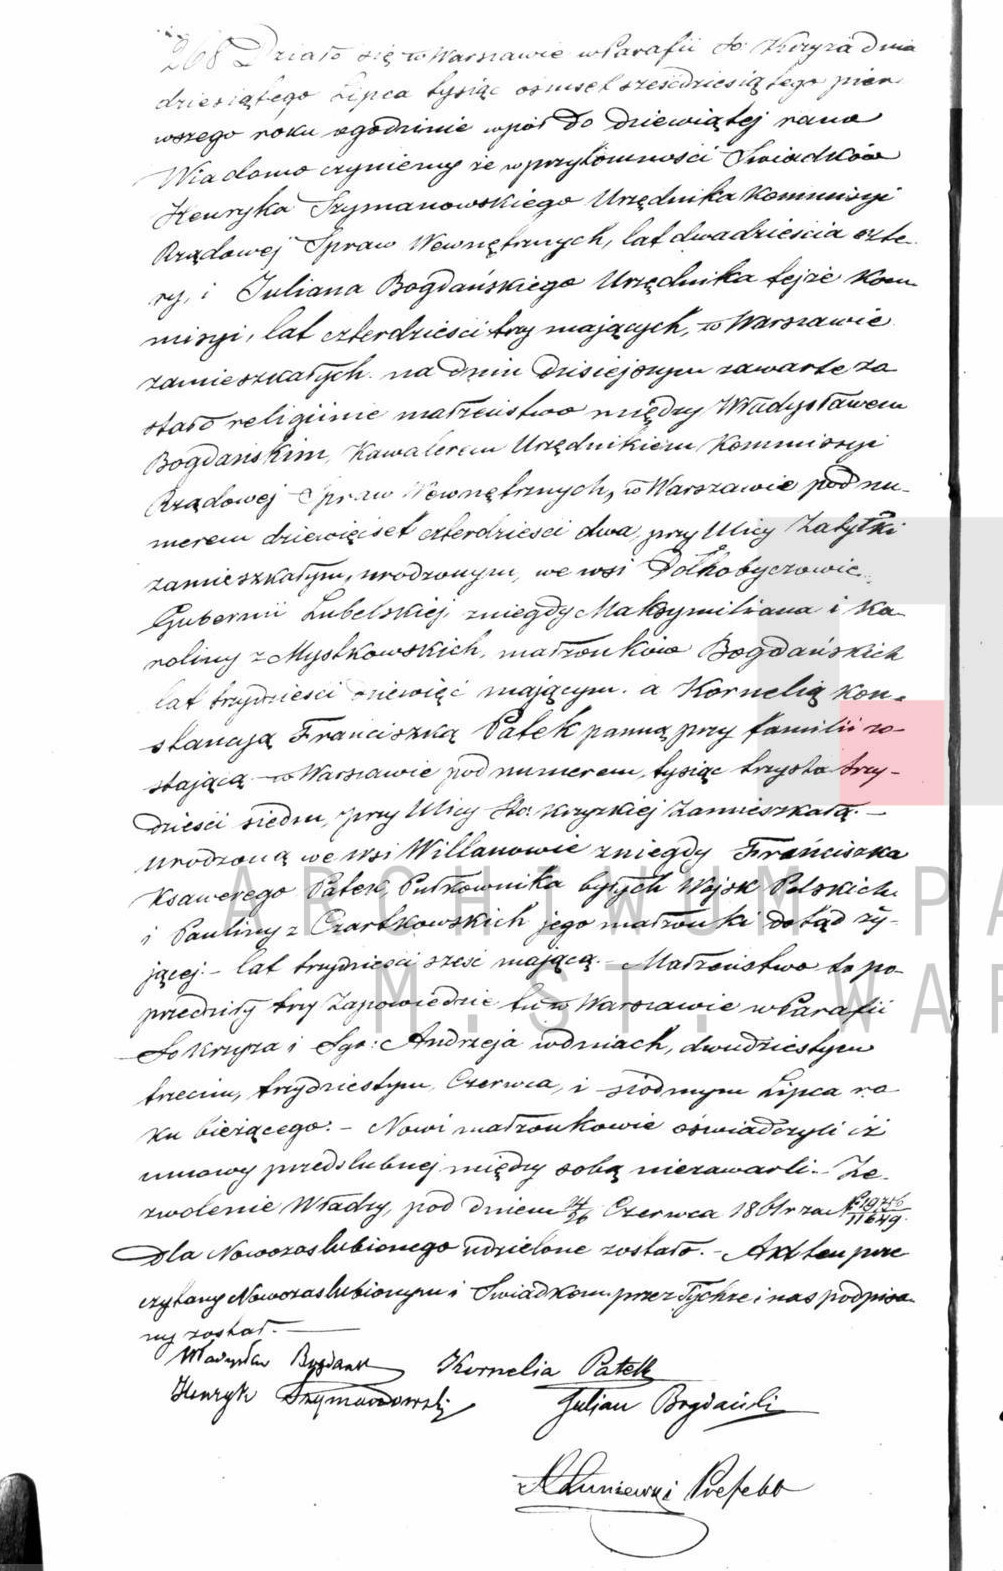 268 Działo się w Warszawie w Parafii Sº Krzyża dnia
dziesiątego Lipca tysiąc osmset sześćdziesiątego pier
wszego roku o godzinie wpół do dziewiątej rano
Wiadomo czyniemy że w przytomności Swiadków
Henryka Szymanowskiego Urzędnika Kommissyi
Rządowej Spraw Wewnętrznych, lat dwadzieścia czte-
ry, i Juliana Bogdańskiego Urzędnika tejże Kom-
missyi, lat czterdzieści trzy mających, w Warszawie
zamieszkałych. na dniu dzisiejszym zawarte zo
stało religijnie małżeństwo między Władysławem
Bogdańskim, Kawalerem Urzędnikiem Kommissyi
Rządowej Spraw Wewnętrznych, w Warszawie pod nu-
merem dziewięćset czterdzieści dwa, przy Ulicy Zatyłki
zamieszkałym, urodzonym, we wsi Dołhobyczowie
Gubernii Lubelskiej, z niegdy Maksymiliana i Ka-
roliny z Mystkowskich, małżonków Bogdańskich
lat trzydzieści dziewięć mającym. a Kornelią Kon-
stancją Franciszką Patek panną przy familii zo-
stającą w Warszawie pod numerem, tysiąc trzysta trzy-
dzieści siedm, przy Ulicy Sto. Krzyzkiej zamieszkałą. –
urodzoną we wsi Willanowie z niegdy Franciszka
Ksawerego Patek, Pułkownika byłych Wojsk Polskich
i Pauliny z Czartkowskich jego małżonki dotąd ży-
jącej. – lat trzydzieści sześć mającą. – Małżeństwo to po-
przedziły trzy Zapowiedzie tu w Warszawie w Parafii
So Krzyża i Sgo: Andrzeja w dniach, dwudziestym
trzecim, trzydziestym, Czerwca, i siódmym Lipca ro-
ku bieżącego. – Nowi małżonkowie oświadczyli iż
umowy przedslubnej między sobą niezawarli. – Ze-
zwolenie Władzy, pod dniem 14/26 Czerwca 1861 r za
dla Nowozaslubionego udzielone zostało. – Akt ten prze
czytany Nowozaslubionym i Swiadkom przez Tychże i nas podpisa-
ny został. –
Władysław Bogdański Kornelia Patek
Henryk Szymanowski Julian Bogdański
Prefekt
ARCHIWUM PA
M. ST. WAR